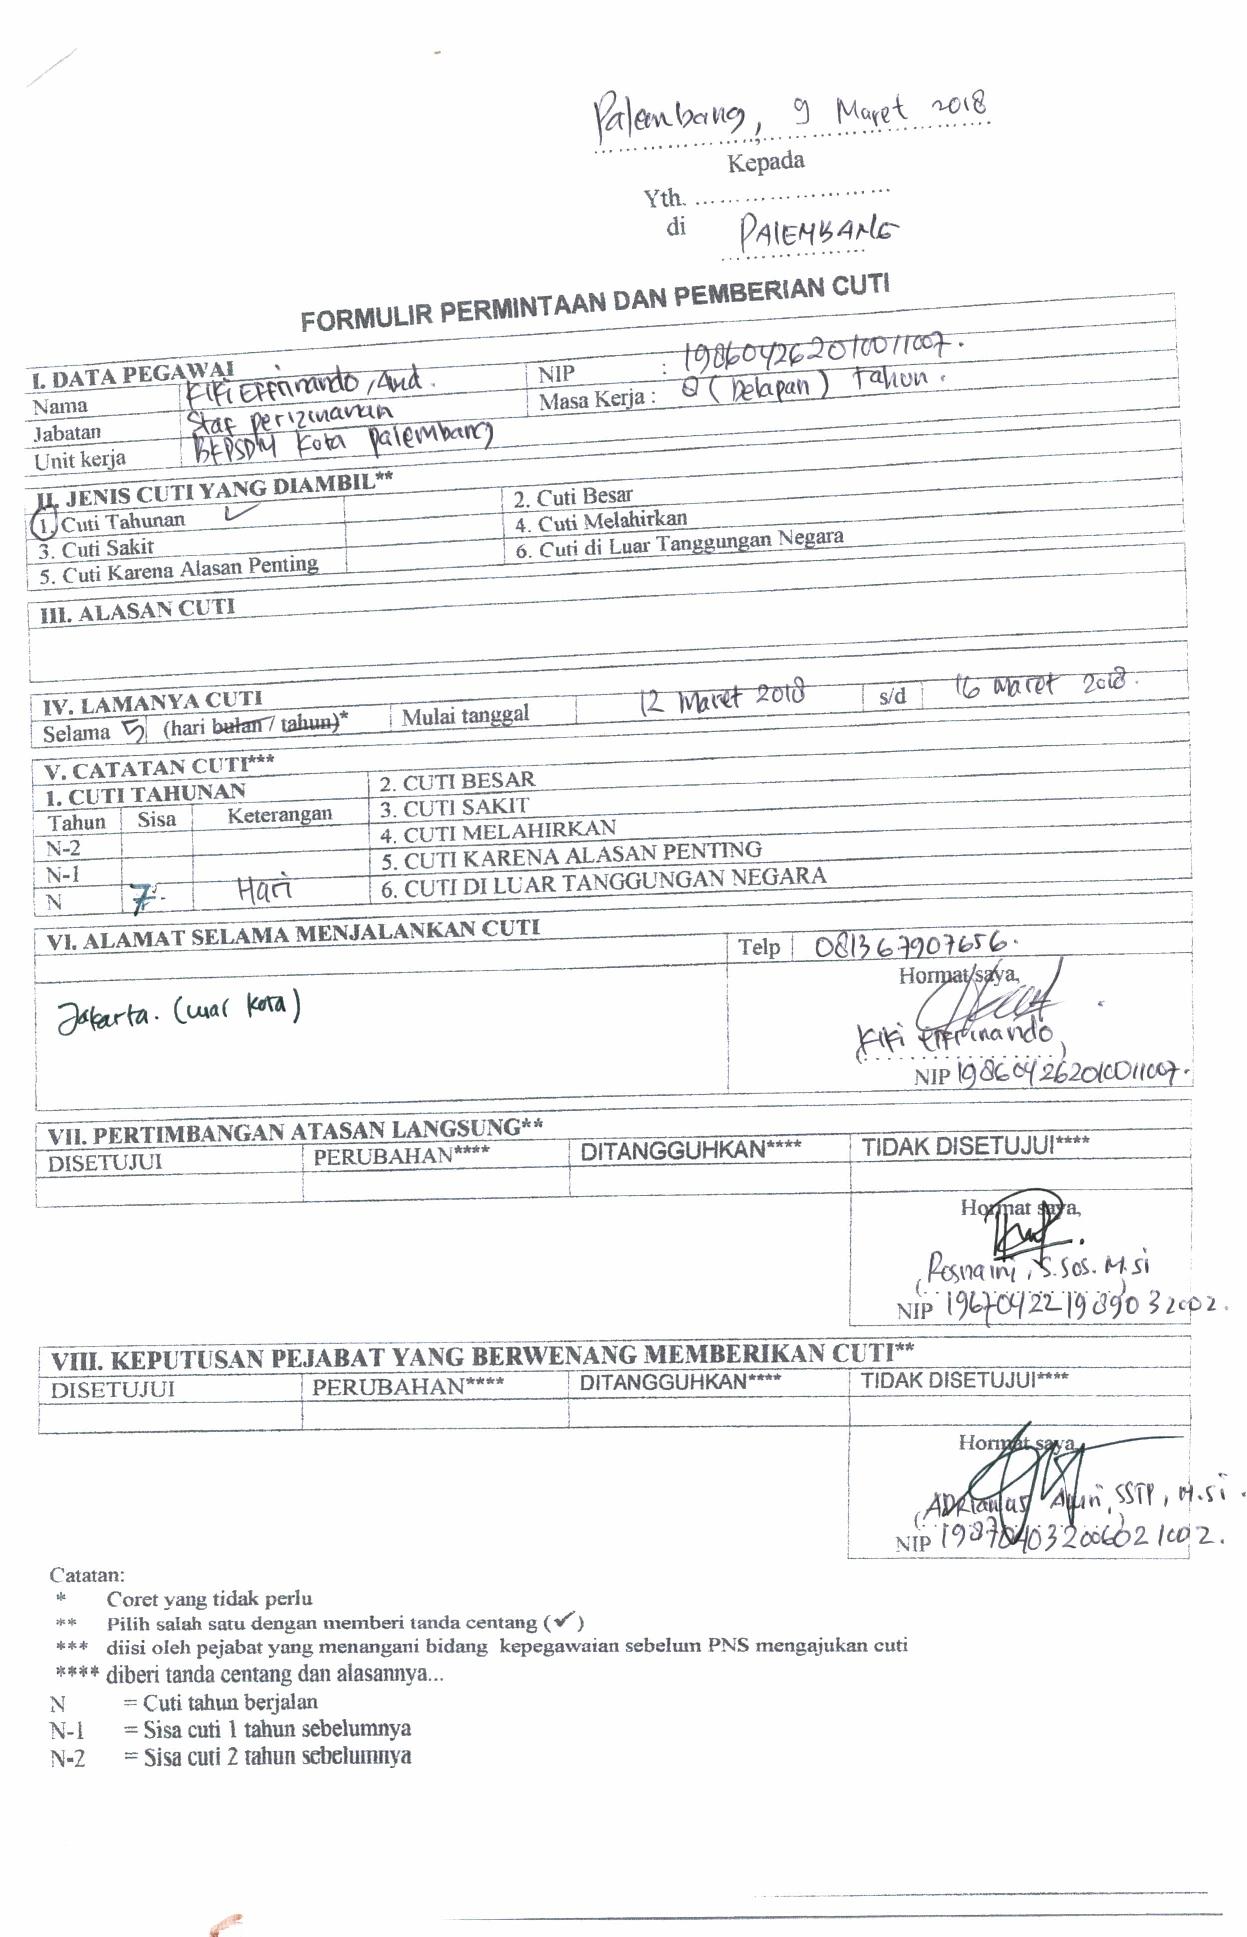 Palembang, 9 Maret 2018
Kepada
Yth. ........................
di PALEMBANG
FORMULIR PERMINTAAN DAN PEMBERIAN CUTI
I. DATA PEGAWAI
Nama Kiki Effrinando, Amd. NIP : 198604262010011007.
Jabatan Staf perizinanan Masa Kerja : 8 (Delapan) Tahun.
Unit kerja BKPSDM Kota Palembang
II. JENIS CUTI YANG DIAMBIL**
1. Cuti Tahunan ✓ 2. Cuti Besar
3. Cuti Sakit 4. Cuti Melahirkan
5. Cuti Karena Alasan Penting 6. Cuti di Luar Tanggungan Negara
III. ALASAN CUTI
IV. LAMANYA CUTI
Selama 5 (hari bulan / tahun)* Mulai tanggal 12 Maret 2018 s/d 16 Maret 2018.
V. CATATAN CUTI***
1. CUTI TAHUNAN 2. CUTI BESAR
Tahun Sisa Keterangan 3. CUTI SAKIT
N-2 4. CUTI MELAHIRKAN
N-1 5. CUTI KARENA ALASAN PENTING
N 7. Hari 6. CUTI DI LUAR TANGGUNGAN NEGARA
VI. ALAMAT SELAMA MENJALANKAN CUTI
Telp 081367907656.
Jakarta. (luar kota) Hormat saya,
Kiki Effrinando
NIP 198604262010011007.
VII. PERTIMBANGAN ATASAN LANGSUNG**
DISETUJUI PERUBAHAN**** DITANGGUHKAN**** TIDAK DISETUJUI****
Hormat saya,
Rosnaini, S.Sos. M.si
NIP 196704221989032002.
VIII. KEPUTUSAN PEJABAT YANG BERWENANG MEMBERIKAN CUTI**
DISETUJUI PERUBAHAN**** DITANGGUHKAN**** TIDAK DISETUJUI****
Hormat saya
SSTP, M.si.
NIP 198704032006021002.
Catatan:
* Coret yang tidak perlu
** Pilih salah satu dengan memberi tanda centang (✓)
*** diisi oleh pejabat yang menangani bidang kepegawaian sebelum PNS mengajukan cuti
**** diberi tanda centang dan alasannya...
N = Cuti tahun berjalan
N-1 = Sisa cuti 1 tahun sebelumnya
N-2 = Sisa cuti 2 tahun sebelumnya